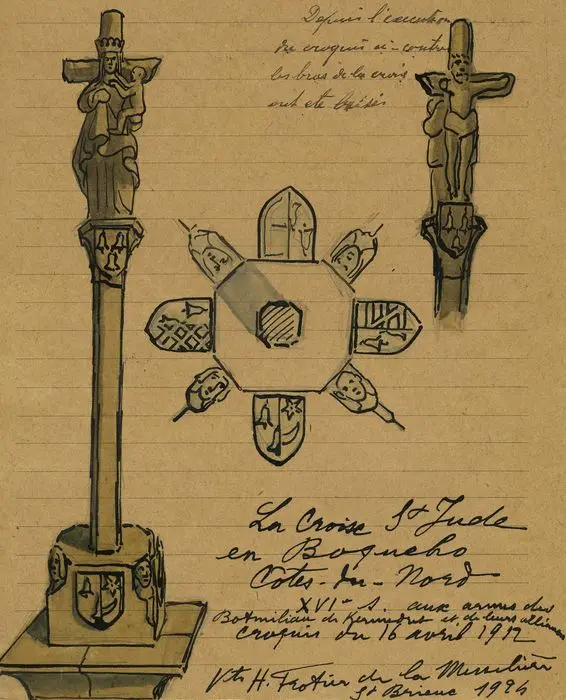 Depuis l'execution
du croquis ci-contre
les bras de la croix
ont été brisés
La Croix St Jude
en Boqueho
Côtes-du-Nord
XVIe S. aux armes des
Botmiliau de Kermedret et de leurs alliances
croquis du 16 avril 1912
Vte H. Frotier de la Messelière
St Brieuc